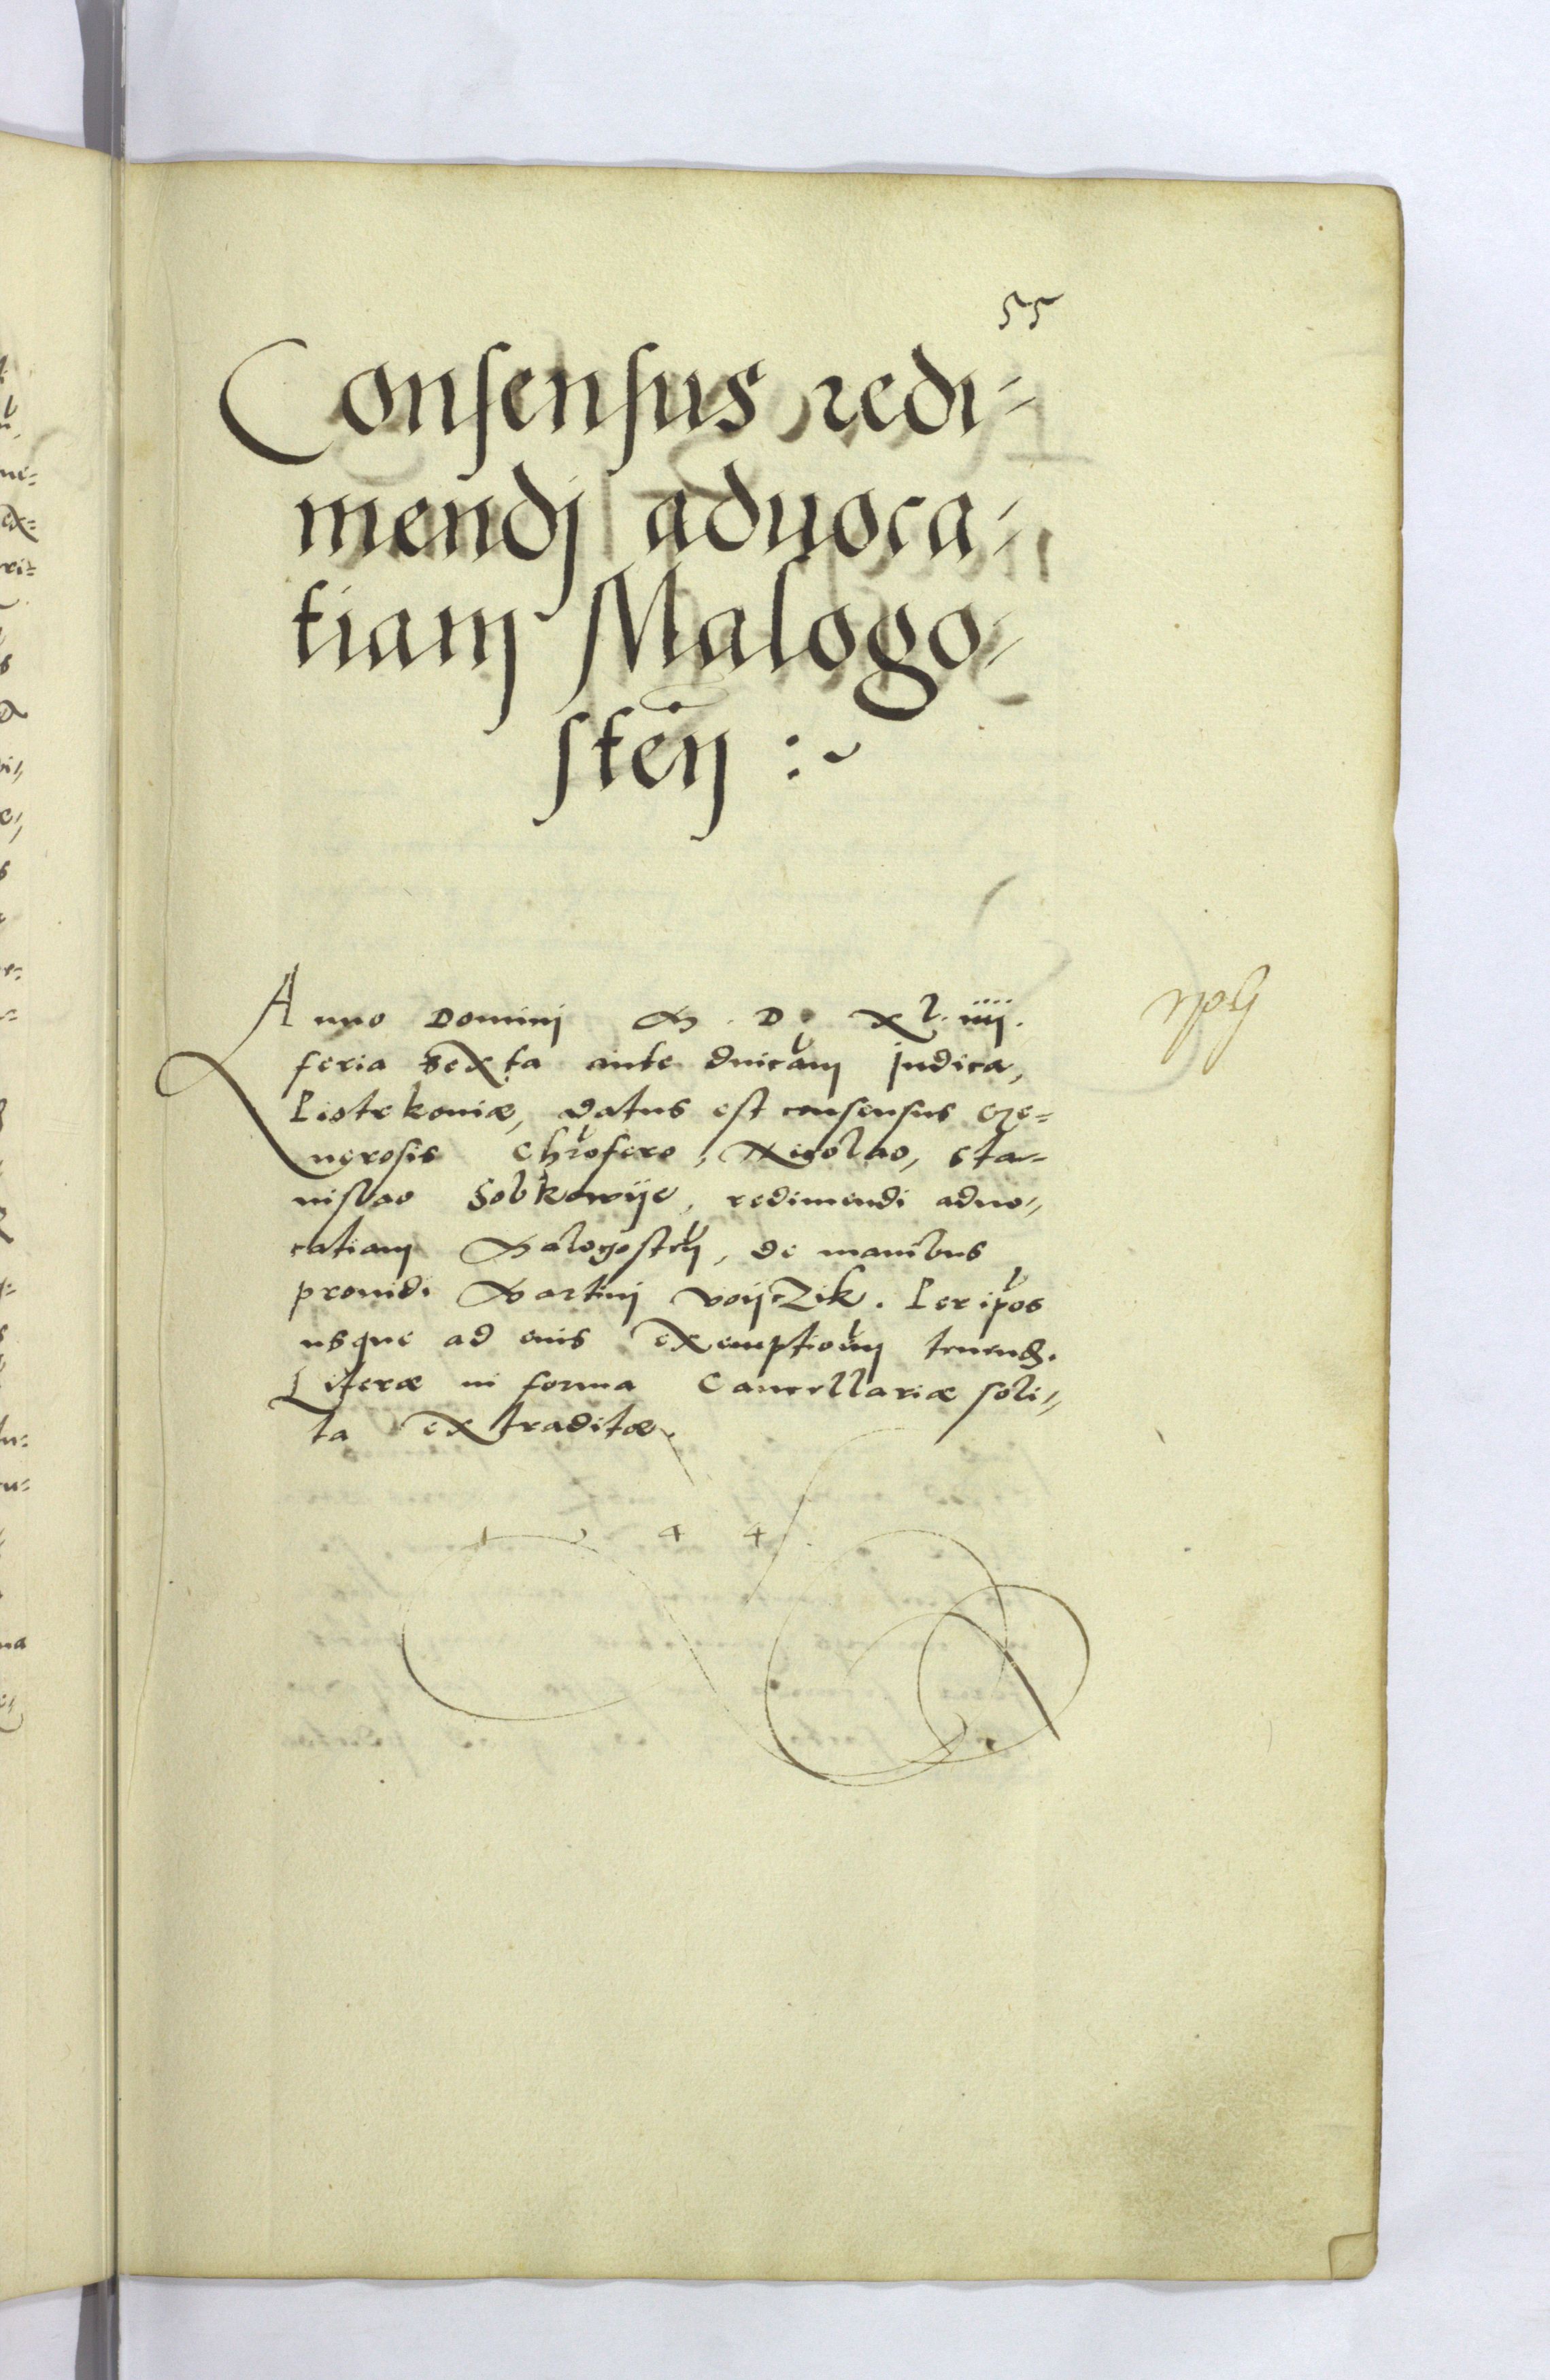 55
Consensus redi-
mendj aduoca-
tiam Malogo-
steñ :~
Anno Dominj M. D. XL. iiij.
feria sexta ante dnicam Judica,
Piotrkoviæ, datus est consensus Ge-
nerosis Chrofero, Nicolao, Sta-
nislao Sobkowije, redimendi aduo-
catiam Malogosteñ, de manibus
prouidi Martinj Woijczik. Per ipos
usque ad euis exemptionem tenend.
Literæ in forma Cancellariæ soli-
ta extraditæ.